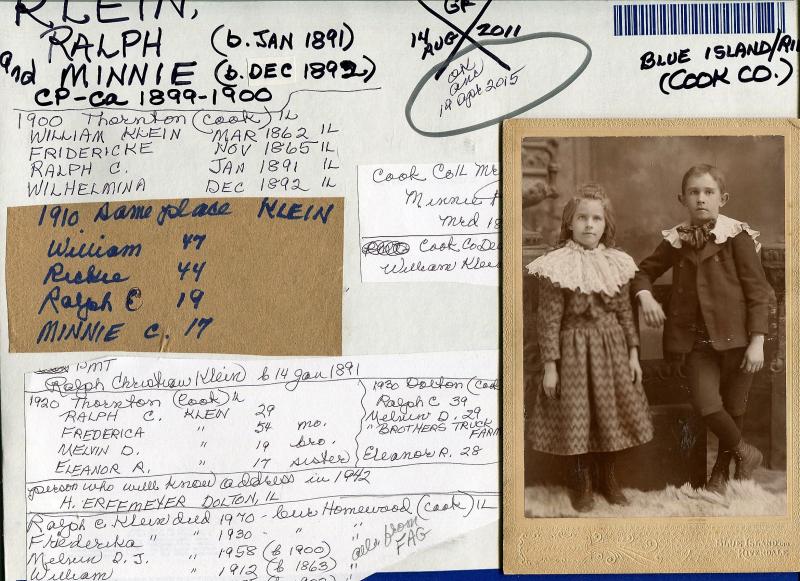 KLEIN,
RALPH (b. JAN 1891)
and MINNIE (b. DEC 1892)
CP-ca 1899-1900
GR
14 AUG 2011
on
anc
19 apr 2015
BLUE ISLAND/RI
(COOK CO.)
1900 Thornton (Cook) IL
WILLIAM KLEIN MAR 1862 IL
FRIDERICKE NOV 1865 IL
RALPH C. JAN 1891 IL
WILHELMINA DEC 1892 IL
1910 Same place KLEIN
William 47
Rickie 44
Ralph C 19
MINNIE C. 17
Cook Co IL Mr
Minnie
Mrd 18
Cook Co De
William Klei
PMT
Ralph Christian Klein b 14 Jan 1891
1920 Thornton (Cook) IL
RALPH C. KLEIN 29
FREDERICA " 54 mo.
MELVIN D. " 19 bro.
ELEANOR R. " 17 sister
1930 Dolton (Cook
Ralph C 39
Melvin D. 29
"BROTHERS TRUCK
FARM
Eleanor R. 28
person who will know address in 1942
H. ERFEMEYER DOLTON, IL
Ralph C. Klein died 1970 - bur Homewood (Cook) IL
Frederika " 1930 - " "
Melvin D. J. " 1958 (b 1900) "
William " 1912 (b 1863) "
all from
FAG
BLUE ISLAND and
RIVERDALE